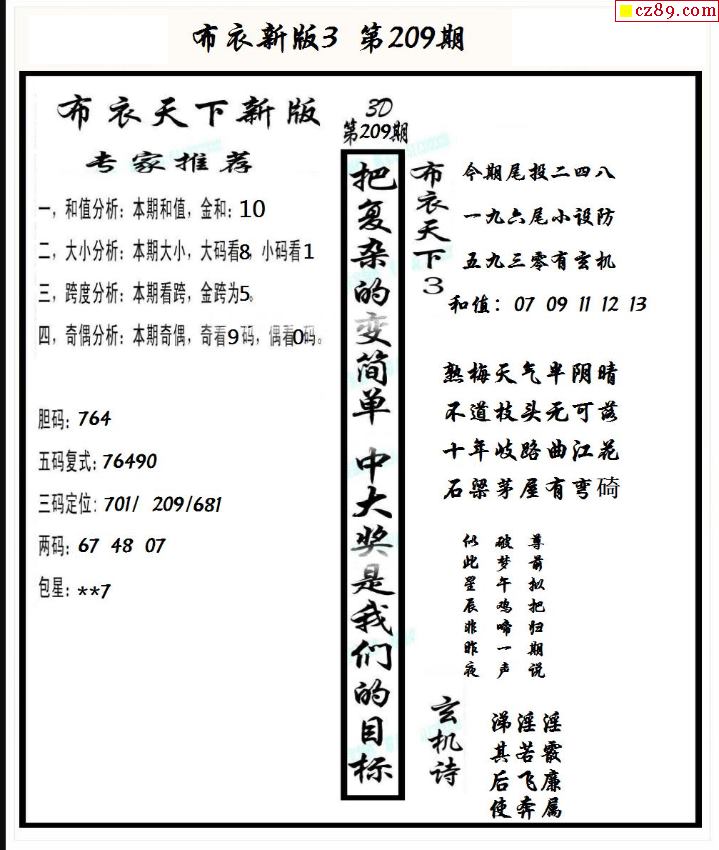 cz89.com
布衣新版3 第209期
布衣天下新版
专家推荐
一，和值分析：本期和值，金和：10
二，大小分析：本期大小，大码看8，小码看1
三，跨度分析：本期看跨，金跨为5。
四，奇偶分析：本期奇偶，奇看9码，偶看0码。
胆码：764
五码复式：76490
三码定位：701/ 209/681
两码：67 48 07
包星：**7
3D
第209期
把复杂的变简单 中大奖是我们的目标
布衣天下3
今期尾投二四八
一九六尾小设防
五九三零有玄机
和值：07 09 11 12 13
熟梅天气半阴晴
不道枝头无可落
十年岐路曲江花
石梁茅屋有弯碕
尊前拟把归期说
破梦午鸡啼一声
似此星辰非昨夜
玄机诗
淫霰廉属
淫若飞奔
涕其后使